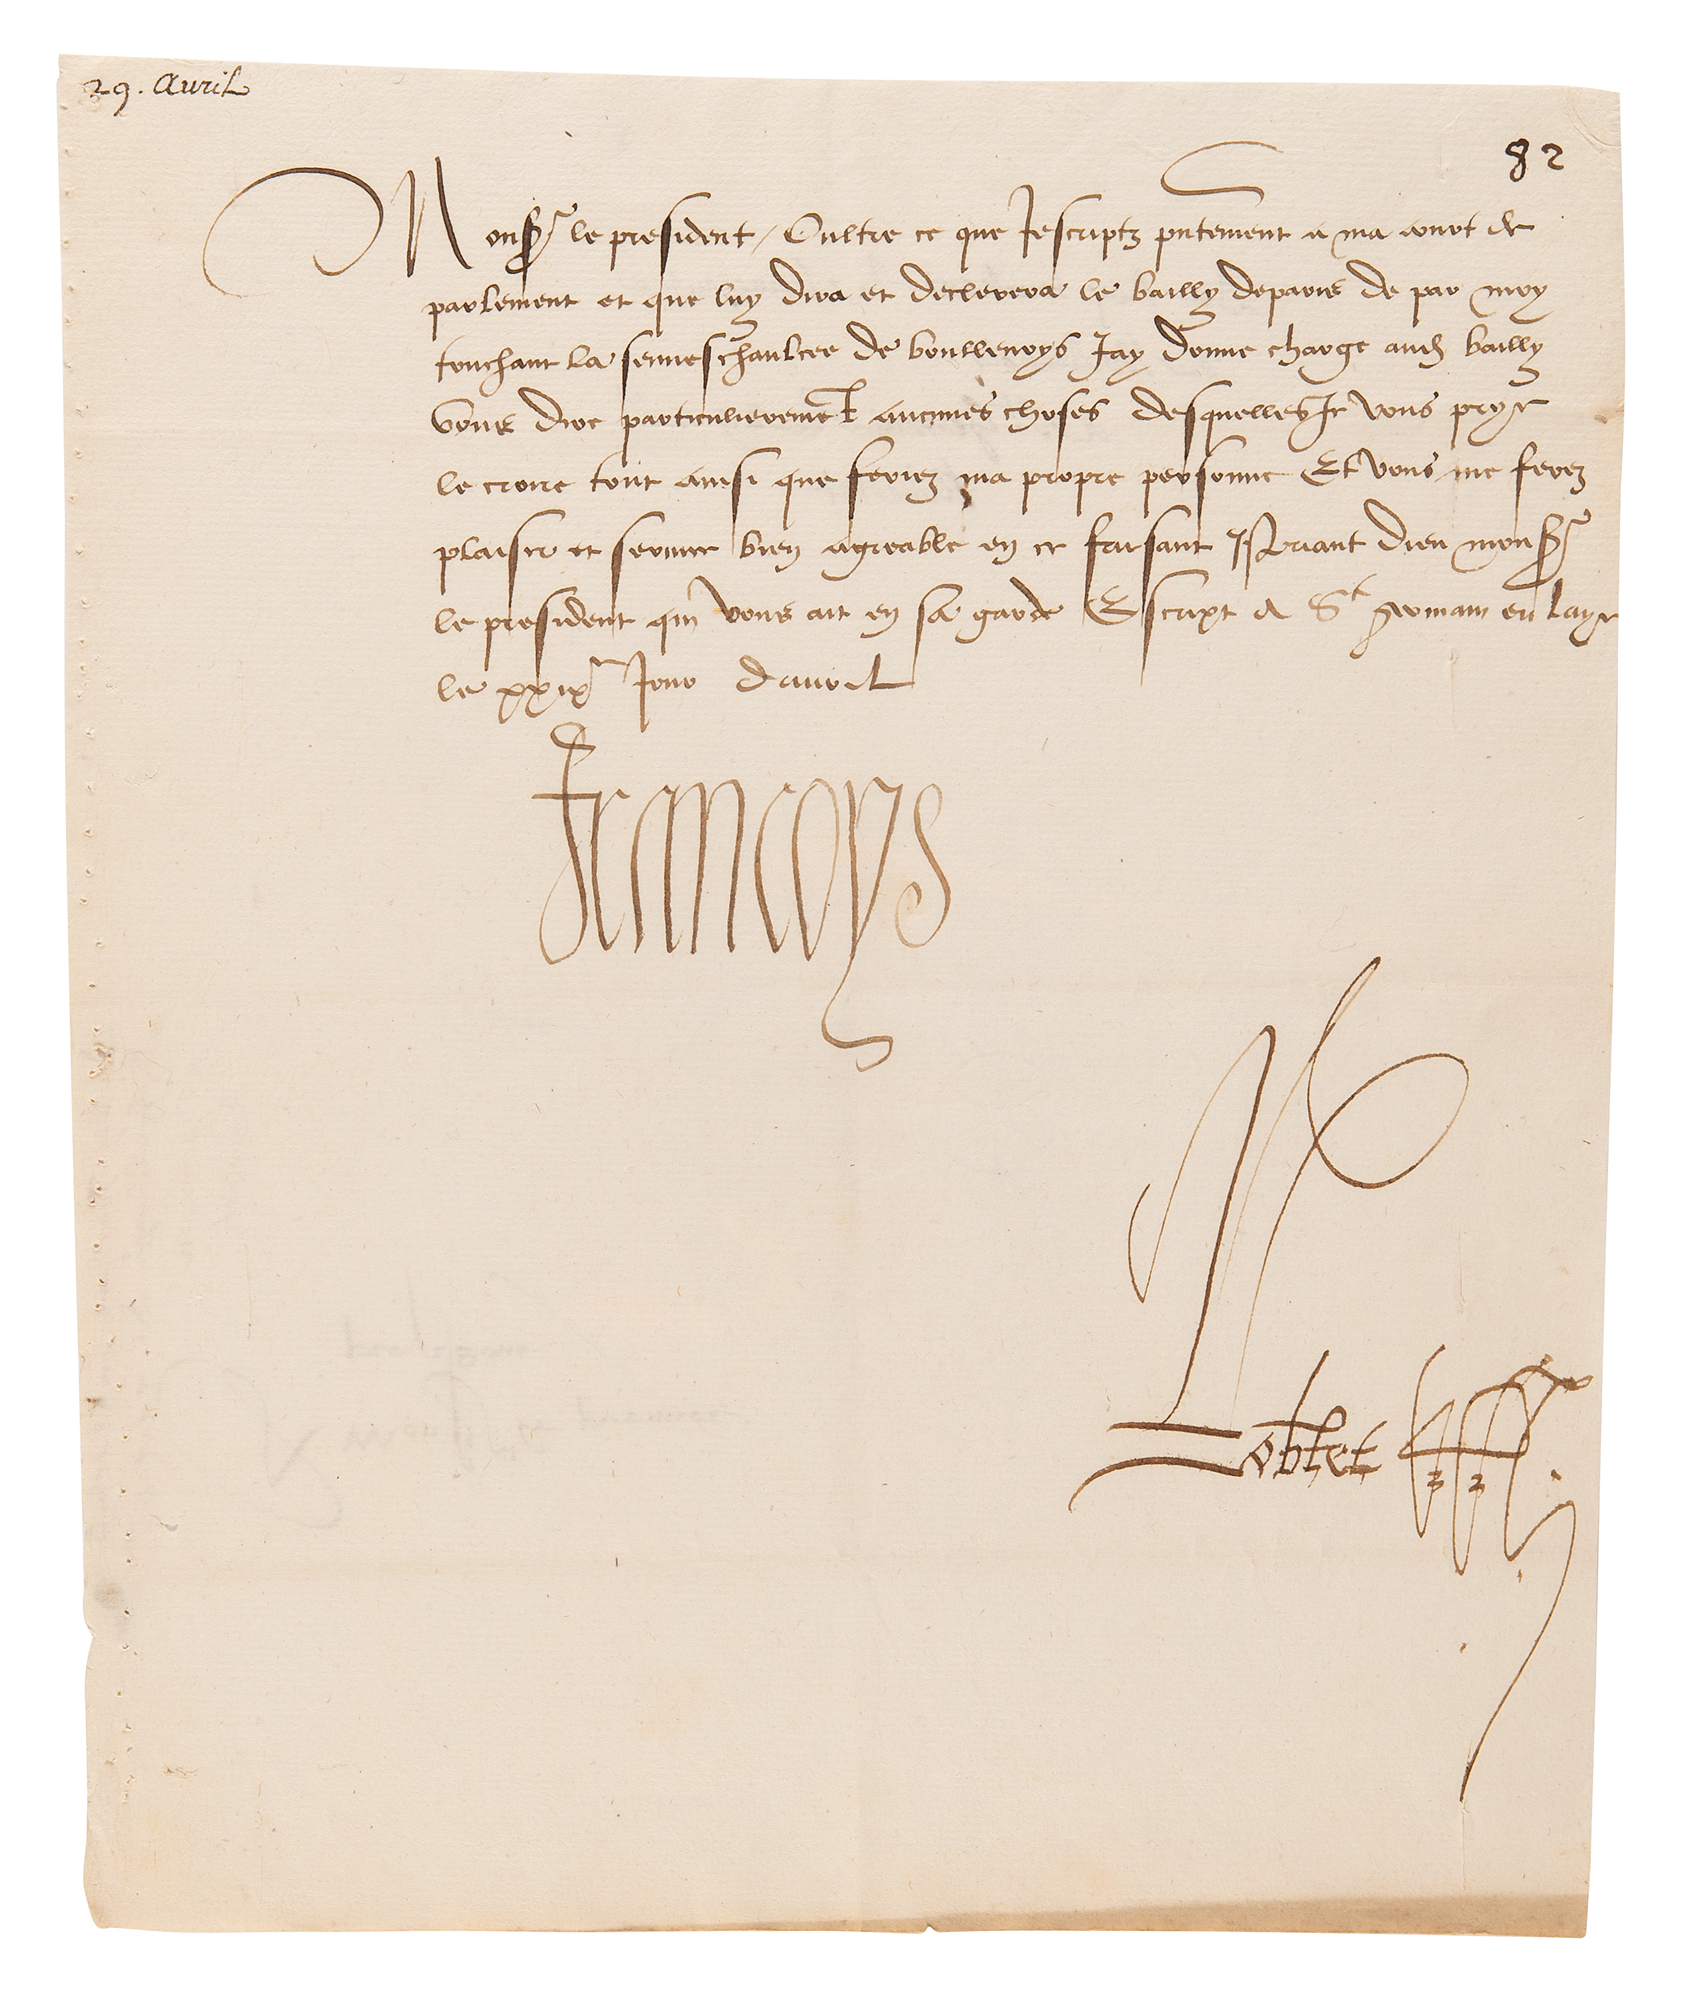 29. Avril
82
Monsr le president / Oultre ce que Jescriptz pntement a ma court de
parlement et que luy dira et declerera le bailly deparis de par moy
touchant la senneschaulcee de boullenoys Jay donne charge aud bailly
vous dire particulierement aucunes choses desquelles Je vous prye
le croire tout ainsi que feriez ma propre personne Et vous me ferez
plaisir et service bien agreable en ce faisant Priant dieu monsr
le president qui vous ait en sa garde Escript a St germain en laye
le xxixe Jour davril
Francoys
Robertet